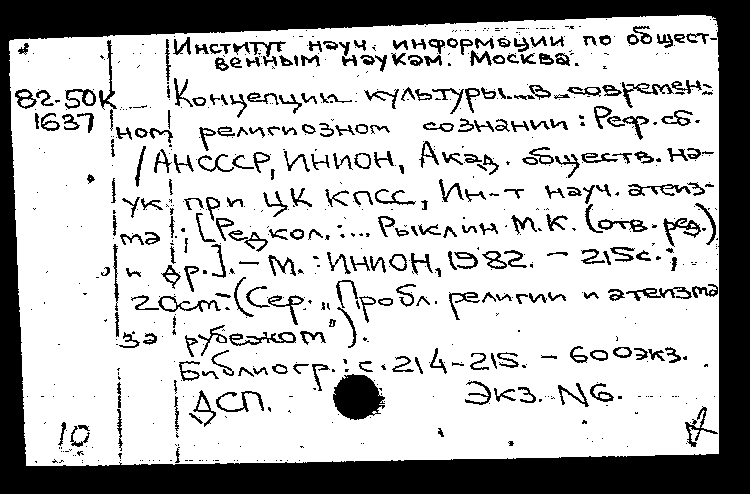 Институт науч. информации по общест-
венным наукам. Москва.
82-50К Концепции культуры в современ-
1637
ном религиозном сознании: Реф. сб.
/АНСССР, ИНИОН, Акад. обществ. на-
ук при ЦК КПСС, Ин-т науч. атеиз-
ма; [Редкол.:... Рыклин М.К. (отв. ред.)
и др.]. - М.: ИНИОН, 1982. - 215с.;
20см-(Сер. „Пробл. религии и атеизма
за рубежом").
Библиогр.: с. 214-215. - 600экз.
ДСП. Экз. N6.
10